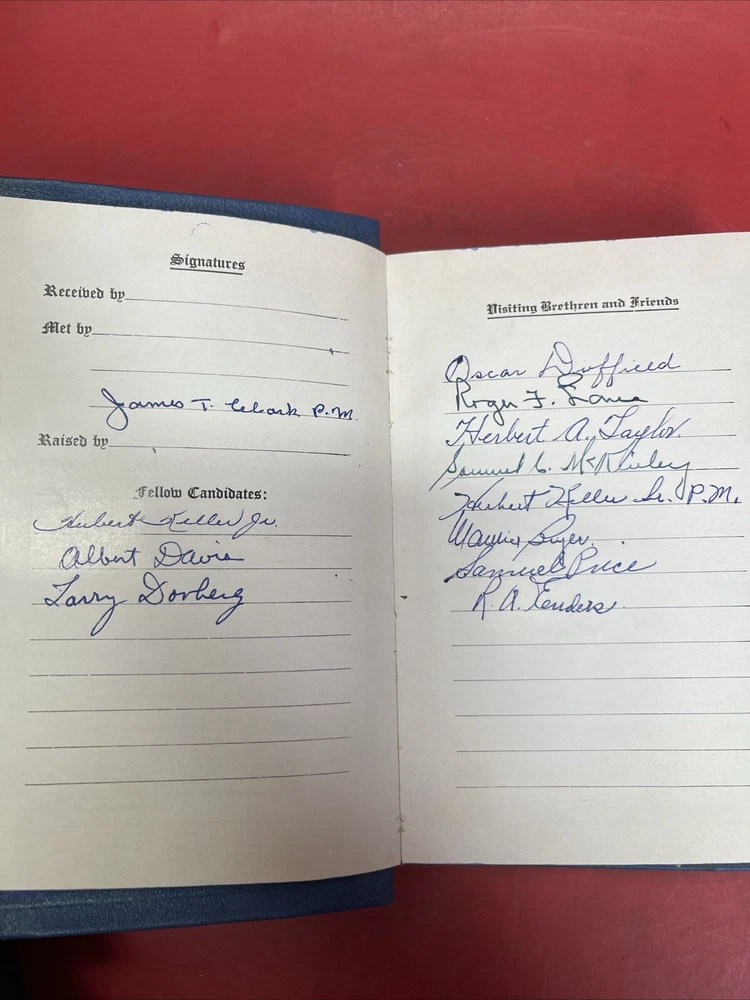 Signatures
Received by
Met by
James T. Clark P.M.
Raised by
Fellow Candidates:
Herbert Keller Jr.
Albert Davis
Larry Dorberg
Visiting Brethren and Friends
Oscar Duffield
Roger F.
Herbert A. Taylor.
Samuel C. McKinley
Herbert Keller Sr. P.M.
Samuel Price
R. A. Enders.